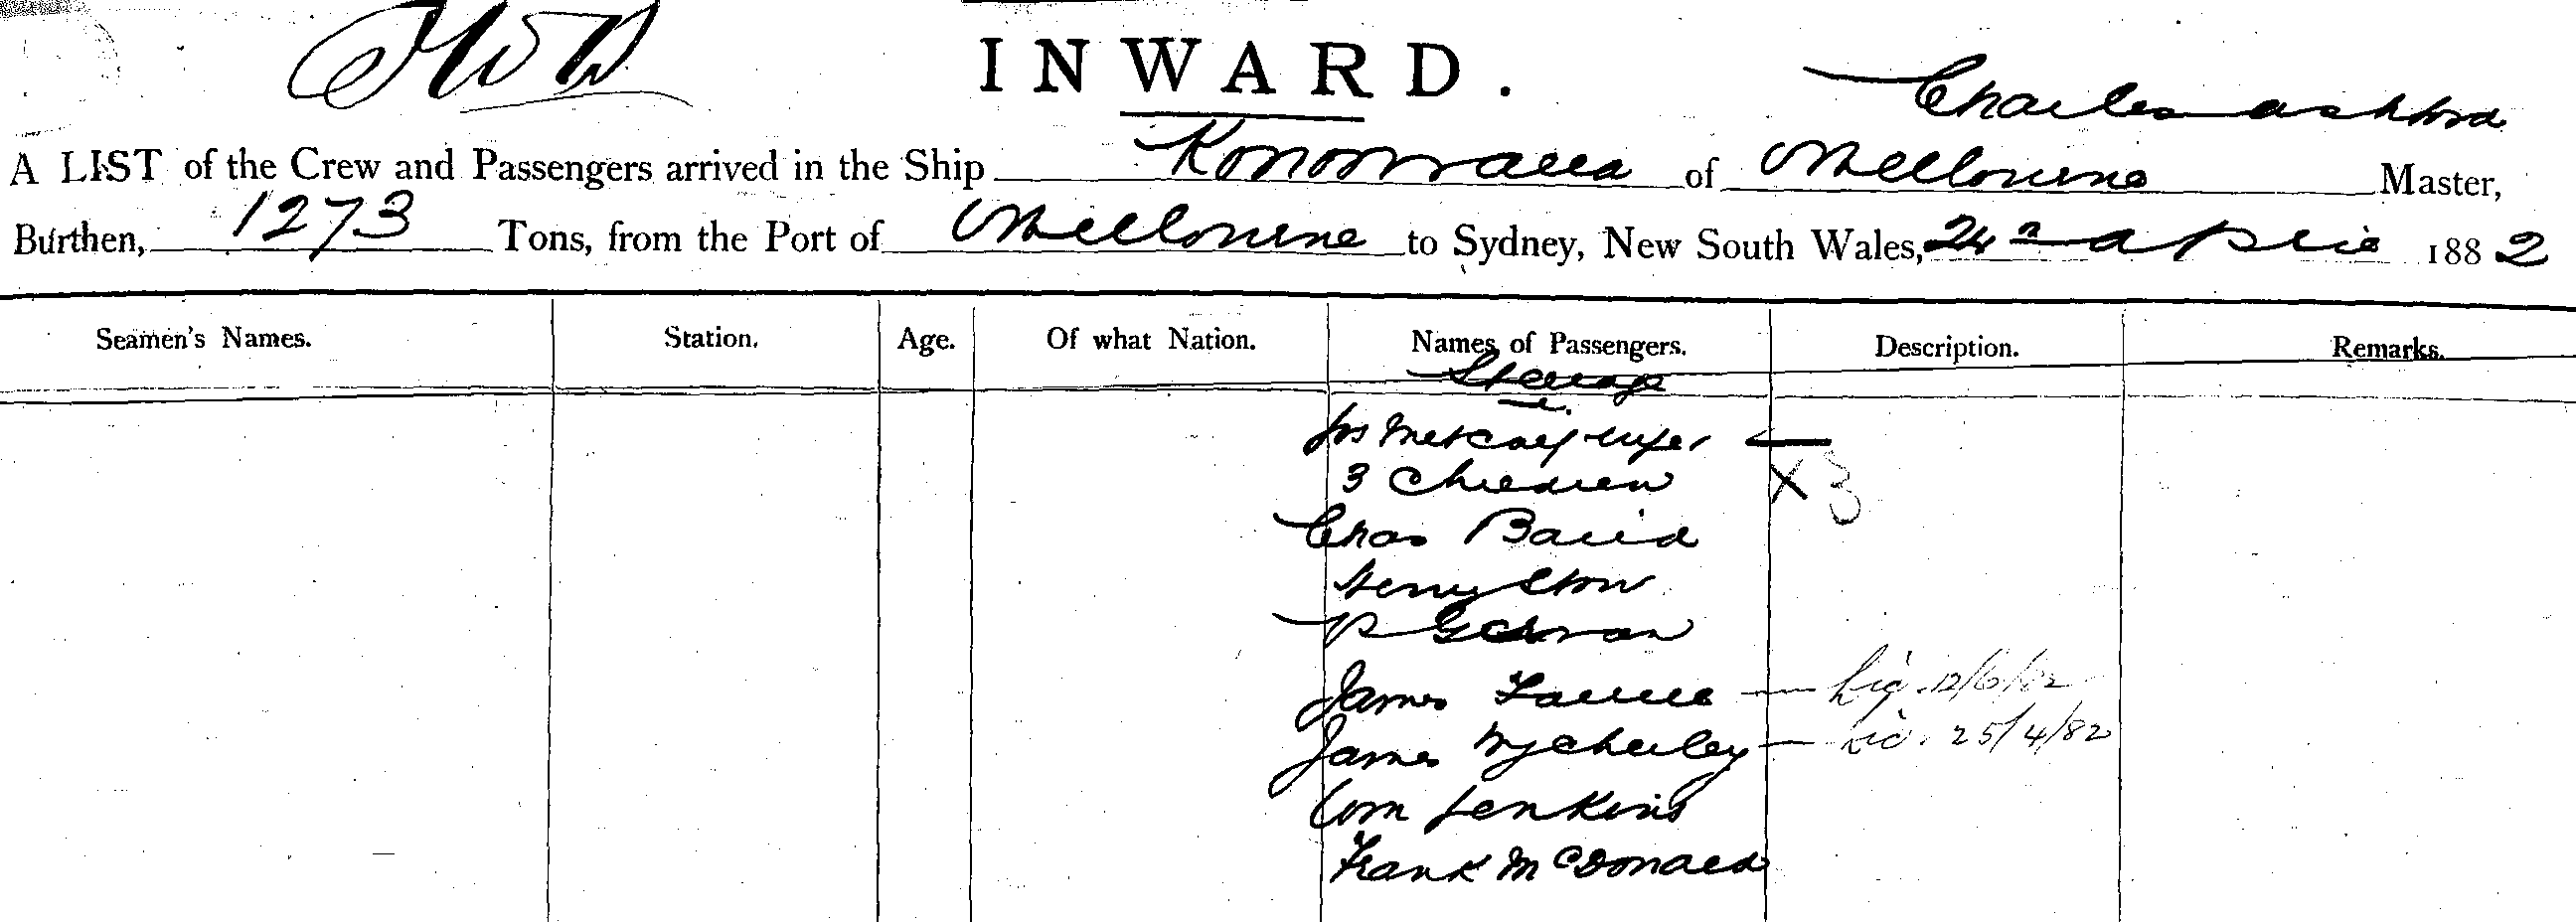 INWARD.
Charles Ashford
A LIST of the Crew and Passengers arrived in the Ship Konoowarra of Melbourne Master,
Burthen, 1273 Tons, from the Port of Melbourne to Sydney, New South Wales, 24 April 1882
Seamen's Names. Station. Age. Of what Nation. Names of Passengers. Description. Remarks.
Steerage
Jos Metcalf wife
3 Children X 3
Chas Baird
Henry
P
James
James Wycherley — 25/4/82
Wm Jenkins
Frank McDonald